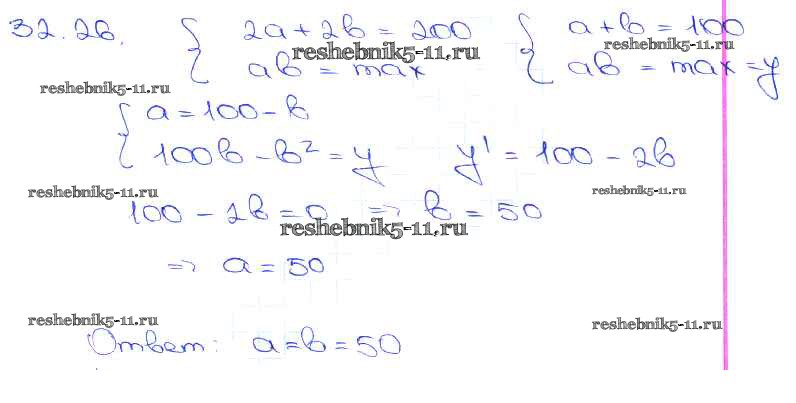 32.26. { 2a + 2b = 200 { a + b = 100
reshebnik5-11.ru reshebnik5-11.ru
ab = max ab = max = y
reshebnik5-11.ru
{ a = 100 - b
100b - b² = y y' = 100 - 2b
reshebnik5-11.ru reshebnik5-11.ru
100 - 2b = 0 => b = 50
reshebnik5-11.ru
=> a = 50
reshebnik5-11.ru reshebnik5-11.ru
Ответ: a = b = 50